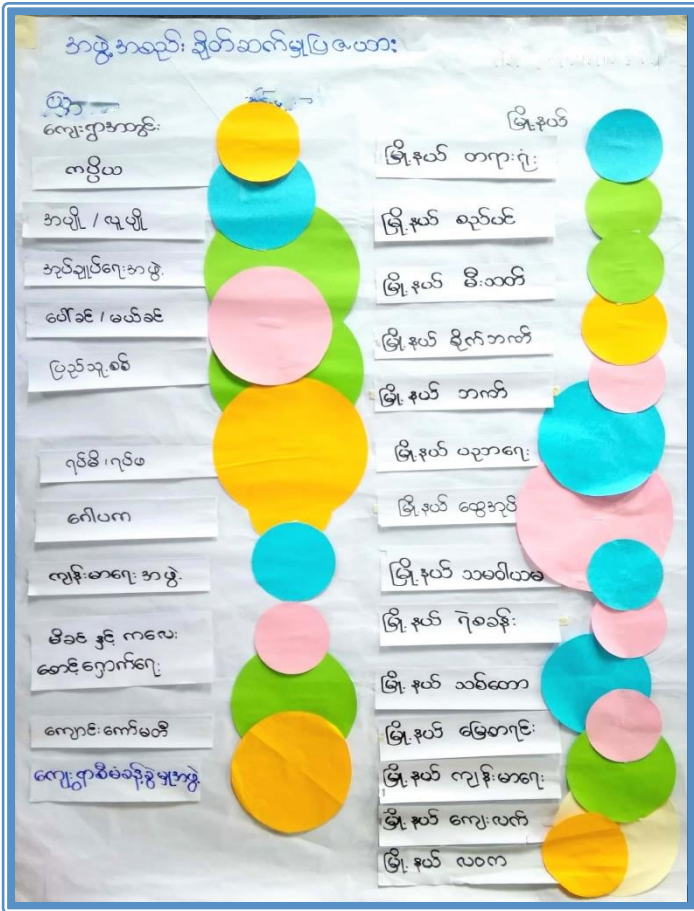 အဖွဲ့အစည်း ချိတ်ဆက်မှုပြဇယား
ရွာ
ကျေးရွာအတွင်း
ကပ္ပိယ
အပျို / လူပျို
အုပ်ချုပ်ရေးအဖွဲ့
ပေါ်ခင် / မယ်ခင်
ပြည်သူ့စစ်
ရပ်မိ၊ရပ်ဖ
ဂေါပက
ကျန်းမာရေးအဖွဲ့
မိခင် နှင့် ကလေး
စောင့်ရှောက်ရေး
ကျောင်းကော်မတီ
ကျေးရွာစီမံခန့်ခွဲမှုအဖွဲ့
မြို့နယ်
မြို့နယ် တရားရုံး
မြို့နယ် စည်ပင်
မြို့နယ် မီးသတ်
မြို့နယ် စိုက်ဘဏ်
မြို့နယ် ဘဏ်
မြို့နယ် ပညာရေး
မြို့နယ် ထွေအုပ်
မြို့နယ် သမဝါယမ
မြို့နယ် ရဲစခန်း
မြို့နယ် သစ်တော
မြို့နယ် မြေစာရင်း
မြို့နယ် ကျန်းမာရေး
မြို့နယ် ကျေးလက်
မြို့နယ် လဝက